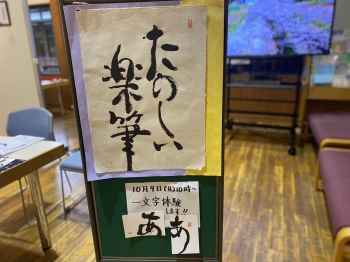 たのしい
楽筆
10月9日(月)10時～
一文字体験
します!!
あ あ